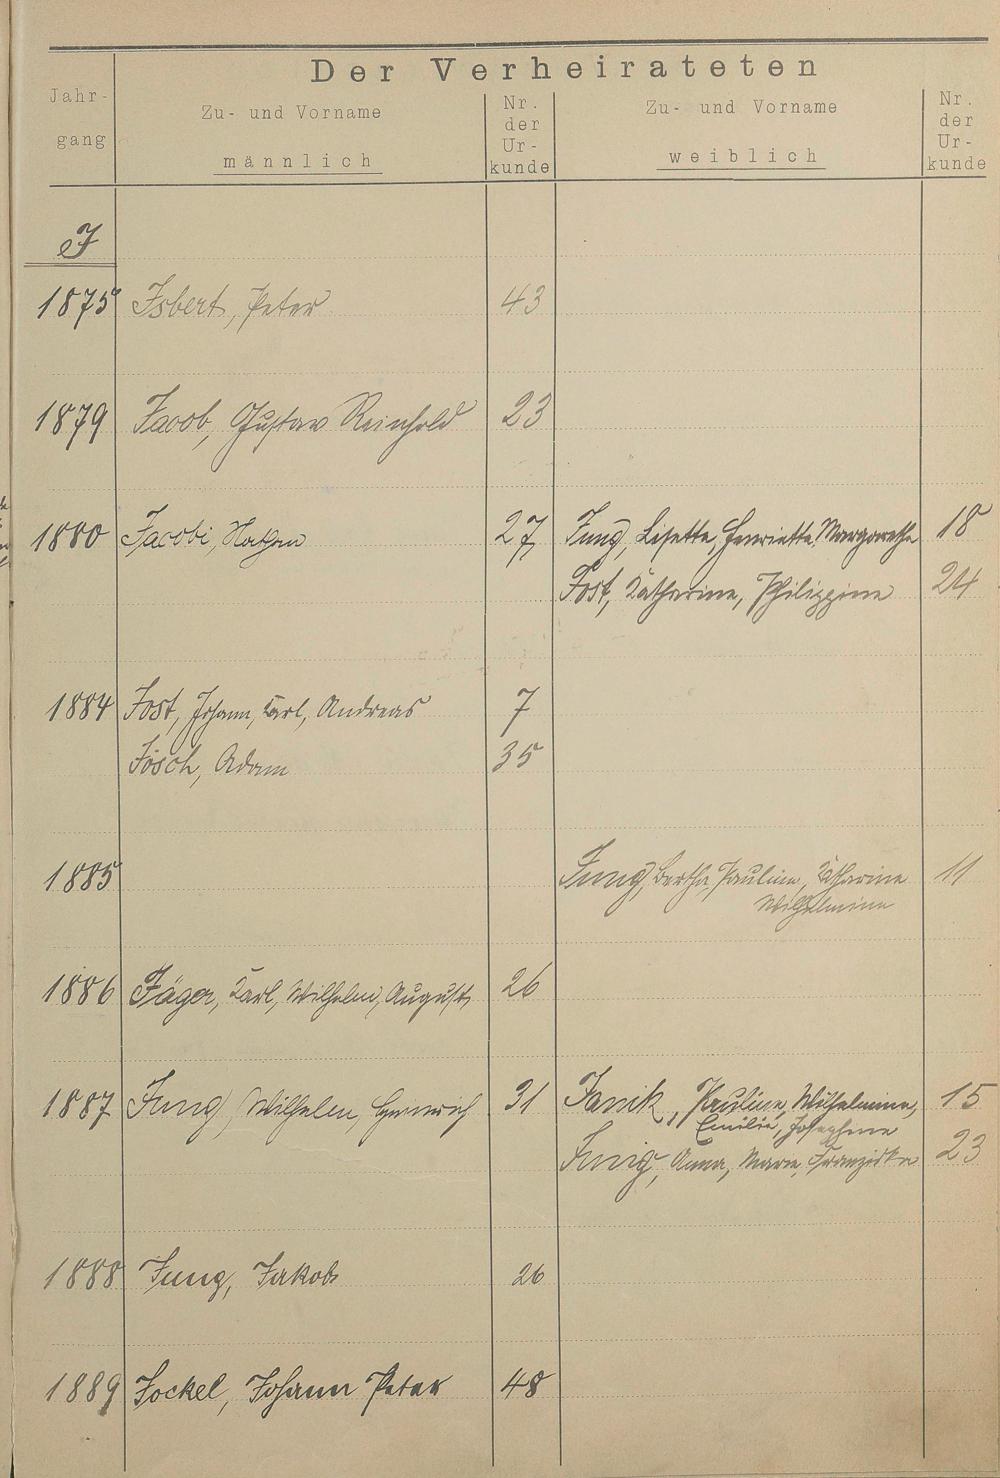 Der Verheirateten
Jahr-
gang
Zu- und Vorname
männlich
Nr.
der
Ur-
kunde
Zu- und Vorname
weiblich
Nr.
der
Ur-
kunde
J
1875 Isbert, Peter 43
1879 Jacob, Gustav Reinhold 23
1880 Jacobi, Nathan 27 Jung, Lisette, Henriette Margarethe 18
Jost, Katharine, Philippine 24
1884 Jost, Johann, Karl, Andreas 7
Jösch, Adam 35
1885 Jung, Bertha, Pauline, Katharine 11
Wilhelmine
1886 Jäger, Karl, Wilhelm, August, 26
1887 Jung, Wilhelm, Heinrich 31 Janik, Pauline, Wilhelmine, 15
Emilie, Josephine
Jung, Anna, Marie, Franziska 23
1888 Jung, Jakob 26
1889 Jockel, Johann Peter 48